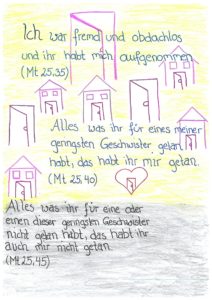 Ich war fremd und obdachlos
und ihr habt mich aufgenommen
(Mt 25,35)
Alles was ihr für eines meiner
geringsten Geschwister getan
habt, das habt ihr mir getan.
(Mt 25,40)
Alles was ihr für eine oder
einen dieser geringsten Geschwister
nicht getan habt, das habt ihr
auch mir nicht getan.
(Mt 25,45)